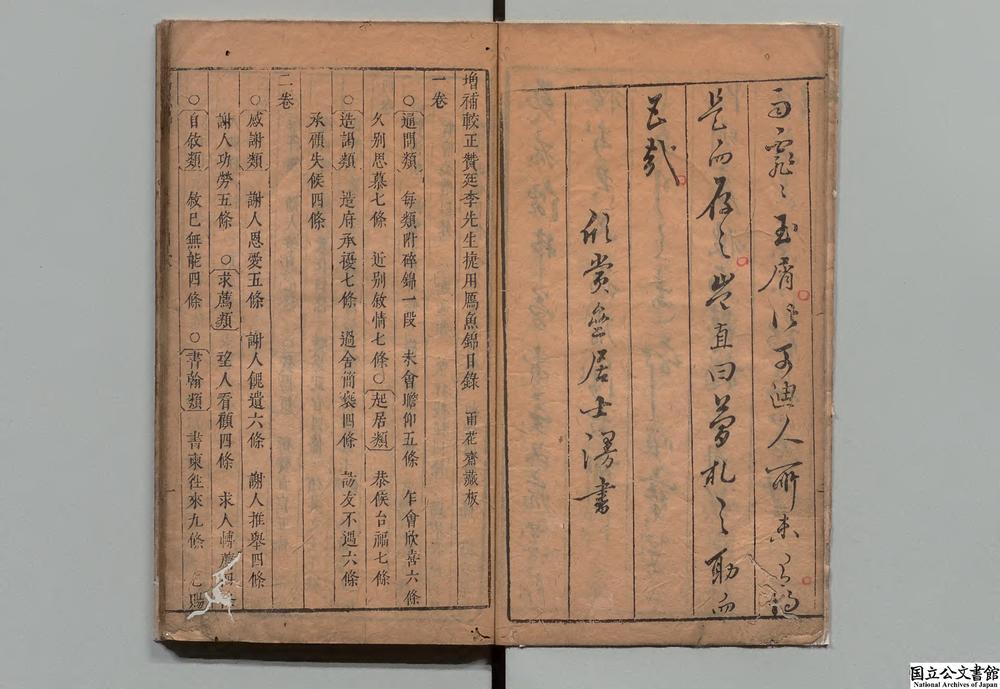 是而存之豈直曰尊札之助而
已哉
欣賞齋居士漫書
增補較正贊廷李先生捷用鴈魚錦目錄 甫花齋藏板
一卷
○通問類 每類附碎錦一段 未會瞻仰五條 乍會欣喜六條
久别思慕七條 近别敘情七條○起居類 恭候台福七條
○造謁類 造府承擾七條 過舍簡褻四條 訪友不遇六條
承顧失候四條
二卷
○感謝類 謝人恩愛五條 謝人餽遺六條 謝人推舉四條
謝人功勞五條 ○求薦類 望人看顧四條 求人轉薦四條
○自敘類 敘已無能四條 ○書翰類 書柬往來九條
国立公文書館
National Archives of Japan